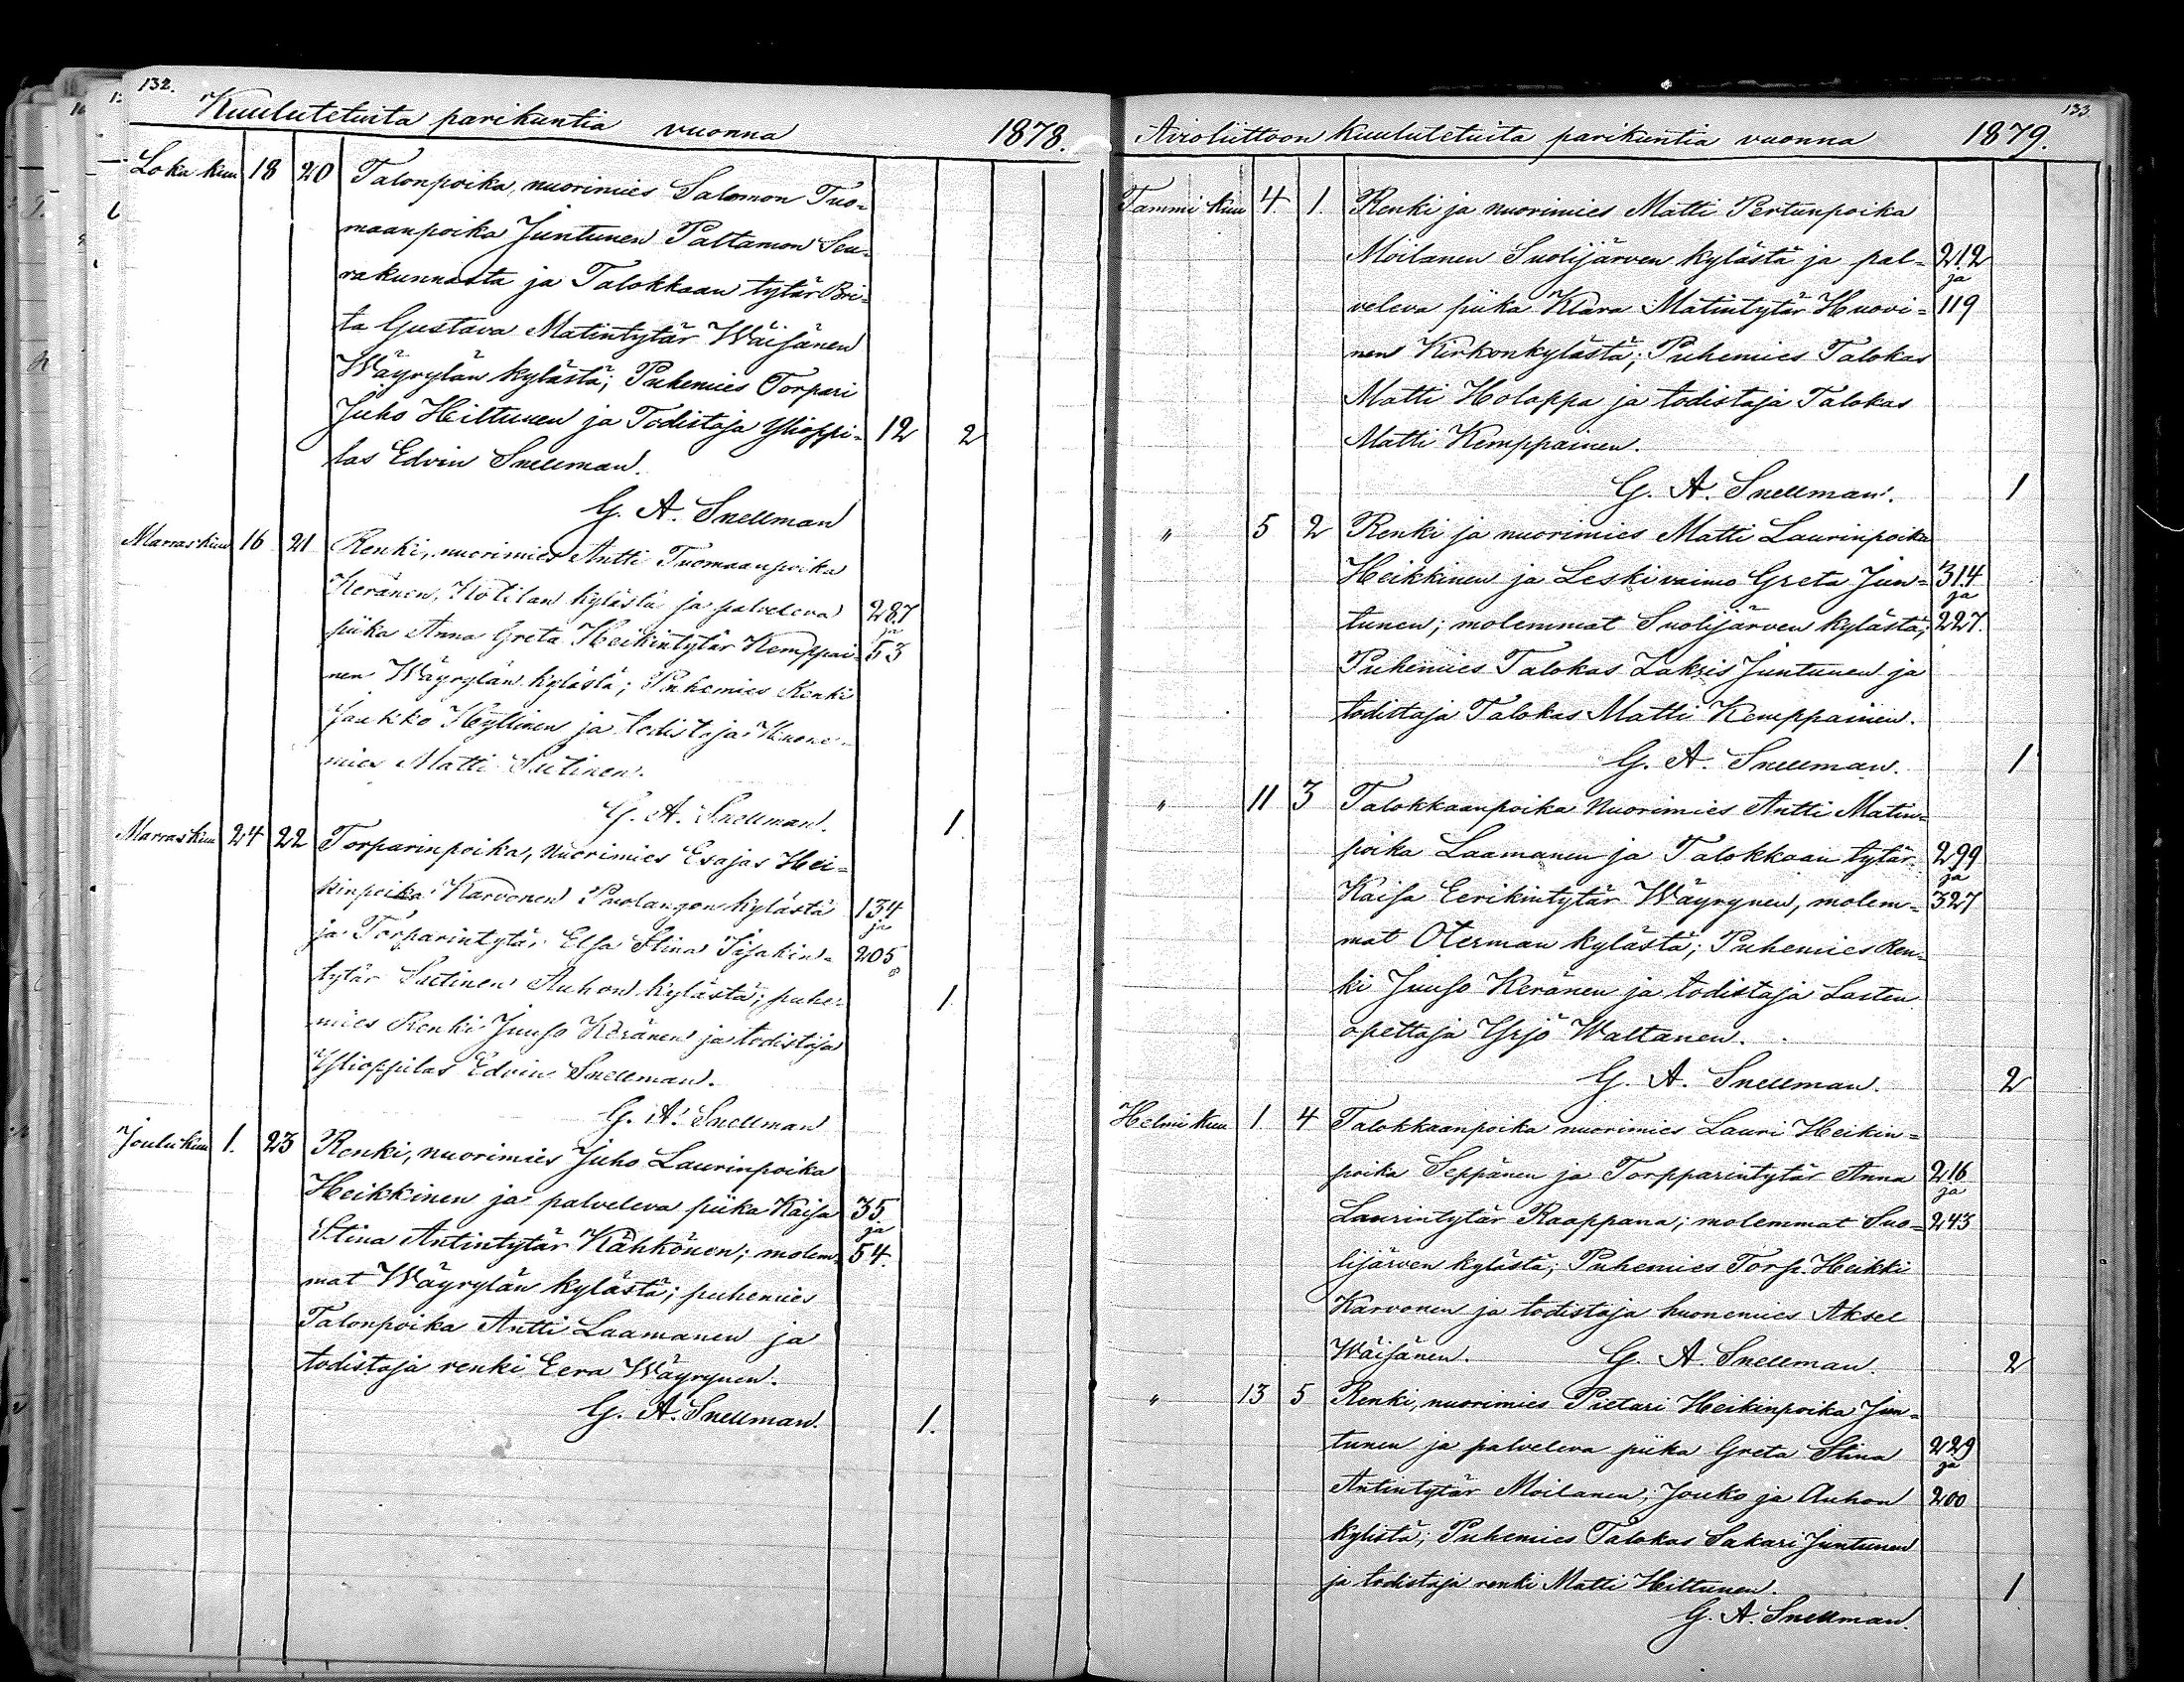 132.
Kuulutetuita parikuntia vuonna 1878.
Lokakuu 18 20 Talonpoika, nuorimies Salomon Tuo-
maanpoika Juntunen Paltamon Seu-
rakunnasta ja Talokkaan tytär Bri-
ta Gustava Matintytär Wäisänen
Wäyrylän kylästä; Puhemies Torpari
Juho Hiltunen ja Todistaja Ylioppi- 12 2
las Edvin Snellman.
G. A. Snellman
Marraskuu 16 21 Renki, nuorimies Antti Tuomaanpoika
Keränen, Kotilan kylästä ja palveleva 287 ja
piika Anna Greta Heikintytär Kemppai- 53
nen Wäyrylän kylästä; Puhemies Renki
Jaukko Hyttinen ja todistaja Huone-
mies Matti Sutinen.
G. A. Snellman. 1.
Marraskuu 24 22 Torparinpoika, nuorimies Esajas Hei-
kinpoika Karvonen Puolangon kylästä 134 ja
ja Torparintytär Elsa Stina Iisakin- 205
tytär Sutinen Auhon kylästä; puhe- 1.
mies Renki Juuso Keränen ja todistaja
Ylioppilas Edvin Snellman.
G. A. Snellman
Joulukuu 1. 23 Renki, nuorimies Juho Laurinpoika
Heikkinen ja palveleva piika Kaisa 35 ja
Stina Antintytär Kähkönen; molem- 54.
mat Wäyrylän kylästä; puhemies
Talonpoika Antti Laamanen ja
todistaja renki Eera Wäyrynen.
G. A. Snellman. 1.
133.
Avioliittoon kuulutetuita parikuntia vuonna 1879.
Tammikuu 4. 1. Renki ja nuorimies Matti Pertunpoika
Moilanen Suolijärven kylästä ja pal- 212 ja
veleva piika Klara Matintytär Huovi- 119
nen Kirkonkylästä; Puhemies Talokas
Matti Holappa ja todistaja Talokas
Matti Kemppainen.
G. A. Snellman. 1
" 5 2 Renki ja nuorimies Matti Laurinpoika
Heikkinen ja Leskivaimo Greta Jun- 314 ja
tunen; molemmat Suolijärven kylästä; 227.
Puhemies Talokas Zakris Juntunen ja
todistaja Talokas Matti Kemppainen.
G. A. Snellman. 1
" 11 3 Talokkaanpoika nuorimies Antti Matin-
poika Laamanen ja Talokkaan tytär 299 ja
Kaisa Eerikintytär Wäyrynen, molem- 327
mat Oterman kylästä; Puhemies Ren-
ki Juuso Keränen ja todistaja Lasten
opettaja Yrjö Waltanen.
G. A. Snellman. 2
Helmikuu 1. 4 Talokkaanpoika nuorimies Lauri Heikin-
poika Seppänen ja Torpparintytär Anna 216 ja
Laurintytär Raappana; molemmat Suo- 243
lijärven kylästä; Puhemies Torp. Heikki
Karvonen ja todistaja huonemies Aksel
Wäisänen. G. A. Snellman. 2
" 13 5 Renki, nuorimies Pietari Heikinpoika Jun-
tunen ja palveleva piika Greta Stina 229 ja
Antintytär Moilanen; Jouko ja Auhon 200
kylistä; Puhemies Talokas Sakari Juntunen
ja todistaja renki Matti Hiltunen. 1
G. A. Snellman.